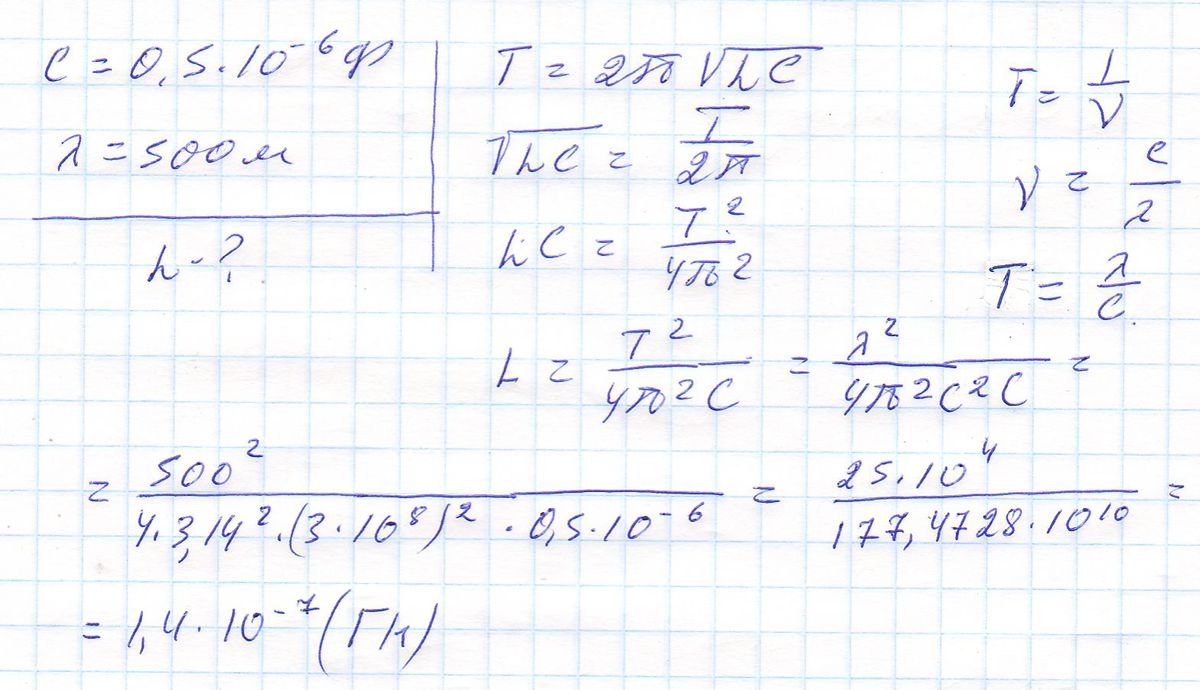 C = 0,5·10⁻⁶ ф
λ = 500 м
L - ?
T = 2π √LC
√LC = T / 2π
LC = T² / 4π²
L = T² / 4π²C = λ² / 4π²c²C =
T = 1 / ν
ν = c / λ
T = λ / c
= 500² / 4·3,14²·(3·10⁸)²·0,5·10⁻⁶ = 25·10⁴ / 177,4728·10¹⁰ =
= 1,4·10⁻⁷ (Гн)